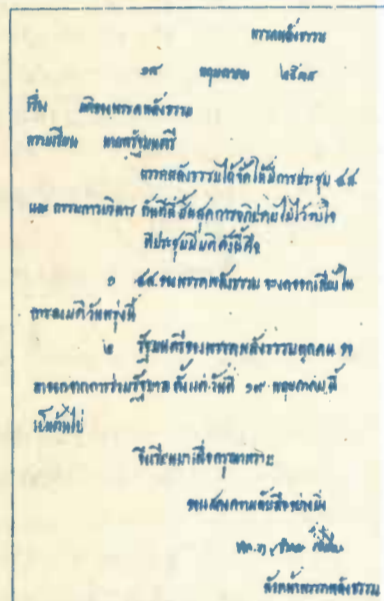 พรรคพลังธรรม
๑๘ พฤษภาคม ๒๕๓๘
เรื่อง มติของพรรคพลังธรรม
กราบเรียน นายกรัฐมนตรี
พรรคพลังธรรมได้จัดให้มีการประชุม ส.ส.
และ กรรมการบริหาร ทันทีที่ สิ้นสุดการอภิปรายไม่ไว้วางใจ
ที่ประชุมมีมติดังนี้คือ
๑ ส.ส.ของพรรคพลังธรรม จะงดออกเสียงใน
การลงมติวันพรุ่งนี้
๒ รัฐมนตรีของพรรคพลังธรรมทุกคน จะ
ลาออกจากการร่วมรัฐบาล ตั้งแต่วันที่ ๑๙ พฤษภาคม นี้
เป็นต้นไป
จึงเรียนมาเพื่อกรุณาทราบ
ขอแสดงความนับถืออย่างยิ่ง
หัวหน้าพรรคพลังธรรม